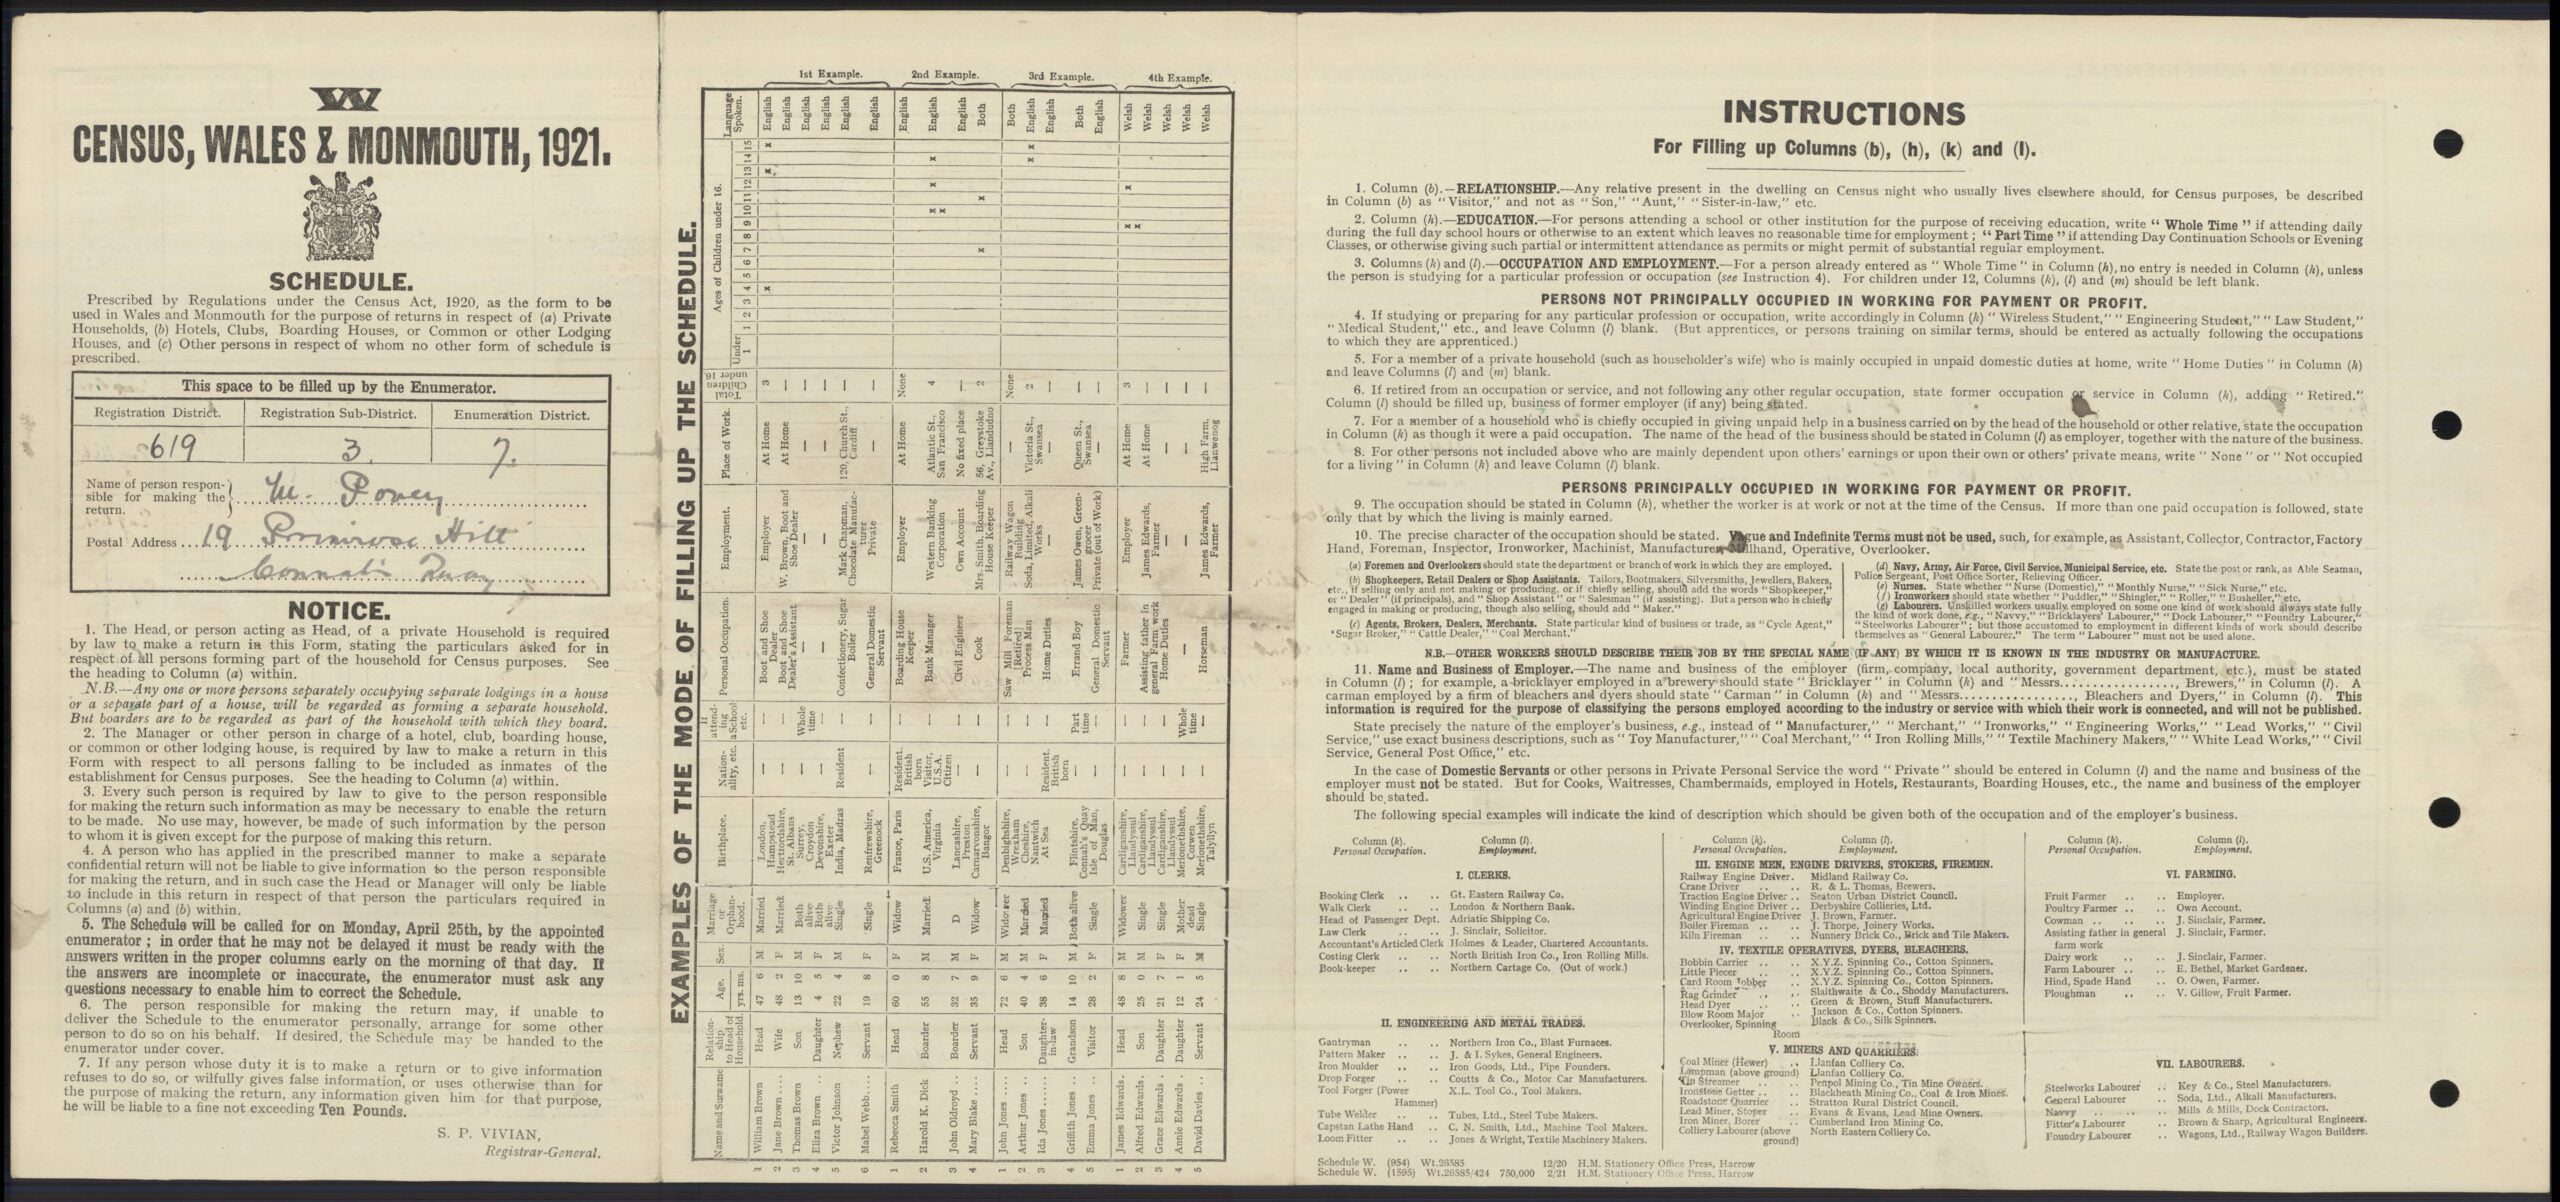 W
CENSUS, WALES & MONMOUTH, 1921.
SCHEDULE.
Prescribed by Regulations under the Census Act, 1920, as the form to be
used in Wales and Monmouth for the purpose of returns in respect of (a) Private
Households, (b) Hotels, Clubs, Boarding Houses, or Common or other Lodging
Houses, and (c) Other persons in respect of whom no other form of schedule is
prescribed.
This space to be filled up by the Enumerator.
Registration District. Registration Sub-District. Enumeration District.
619 3. 7.
Name of person respon-
sible for making the
return.
M. Povey
Postal Address 19 Primrose Hill
Connah's Quay
NOTICE.
1. The Head, or person acting as Head, of a private Household is required
by law to make a return in this Form, stating the particulars asked for in
respect of all persons forming part of the household for Census purposes. See
the heading to Column (a) within.
N.B.—Any one or more persons separately occupying separate lodgings in a house
or a separate part of a house, will be regarded as forming a separate household.
But boarders are to be regarded as part of the household with which they board.
2. The Manager or other person in charge of a hotel, club, boarding house,
or common or other lodging house, is required by law to make a return in this
Form with respect to all persons falling to be included as inmates of the
establishment for Census purposes. See the heading to Column (a) within.
3. Every such person is required by law to give to the person responsible
for making the return such information as may be necessary to enable the return
to be made. No use may, however, be made of such information by the person
to whom it is given except for the purpose of making this return.
4. A person who has applied in the prescribed manner to make a separate
confidential return will not be liable to give information to the person responsible
for making the return, and in such case the Head or Manager will only be liable
to include in this return in respect of that person the particulars required in
Columns (a) and (b) within.
5. The Schedule will be called for on Monday, April 25th, by the appointed
enumerator; in order that he may not be delayed it must be ready with the
answers written in the proper columns early on the morning of that day. If
the answers are incomplete or inaccurate, the enumerator must ask any
questions necessary to enable him to correct the Schedule.
6. The person responsible for making the return may, if unable to
deliver the Schedule to the enumerator personally, arrange for some other
person to do so on his behalf. If desired, the Schedule may be handed to the
enumerator under cover.
7. If any person whose duty it is to make a return or to give information
refuses to do so, or wilfully gives false information, or uses otherwise than for
the purpose of making the return, any information given him for that purpose,
he will be liable to a fine not exceeding Ten Pounds.
S. P. VIVIAN,
Registrar-General.
EXAMPLES OF THE MODE OF FILLING UP THE SCHEDULE.
Name and Surname Relation-ship to Head of Household. Age. yrs. ms. Sex. Marriage or Orphan-hood. Birthplace. Nation-ality, etc. If attend-ing a School etc. Personal Occupation. Employment. Place of Work. Total Children under 16. Ages of Children under 16. Language Spoken.
Under 1 1 2 3 4 5 6 7 8 9 10 11 12 13 14 15
1st Example.
1 William Brown Head 47 6 M Married London, Hampstead — — Boot and Shoe Dealer Employer At Home 3 x x x English
2 Jane Brown Wife 48 2 F Married Hertfordshire, St. Albans — — Boot and Shoe Dealer's Assistant W. Brown, Boot and Shoe Dealer At Home — English
3 Thomas Brown Son 13 10 M Both alive Surrey, Croydon — Whole time — — — — English
4 Eliza Brown Daughter 4 5 F Both alive Devonshire, Exeter — — — — — — English
5 Victor Johnson Nephew 22 4 M Single India, Madras Resident — Confectionery, Sugar Boiler Mark Chapman, Chocolate Manufacturer 120, Church St., Cardiff — English
6 Mabel Webb Servant 19 8 F Single Renfrewshire, Greenock — — General Domestic Servant Private — — English
2nd Example.
1 Rebecca Smith Head 60 0 F Widow France, Paris Resident. British born — Boarding House Keeper Employer At Home None English
2 Harold K. Dick Boarder 55 8 M Married U.S. America, Virginia Visitor, U.S.A. Citizen — Bank Manager Western Banking Corporation Atlantic St., San Francisco 4 x x x x English
3 John Oldroyd Boarder 32 7 M D Lancashire, Preston — — Civil Engineer Own Account No fixed place — English
4 Mary Blake Servant 35 9 F Widow Carnarvonshire, Bangor — — Cook Mrs. Smith, Boarding House Keeper 56, Greystoke Av., Llandudno 2 x x Both
3rd Example.
1 John Jones Head 72 6 M Widower Denbighshire, Wrexham — — Saw Mill Foreman [Retired] Railway Wagon Building — None Both
2 Arthur Jones Son 40 4 M Married Cheshire, Nantwich — — Process Man Soda, Limited, Alkali Works Victoria St., Swansea 2 x x English
3 Ida Jones Daughter-in-law 38 6 F Married At Sea Resident. British born — Home Duties — — — English
4 Griffith Jones Grandson 14 10 M Both alive Flintshire, Connah's Quay — Part time Errand Boy James Owen, Greengrocer Queen St., Swansea — Both
5 Emma Jones Visitor 28 2 F Single Isle of Man, Douglas — — General Domestic Servant Private (out of Work) — — English
4th Example.
1 James Edwards Head 48 8 M Widower Cardiganshire, Llandyssul — — Farmer Employer At Home 3 x x x Welsh
2 Alfred Edwards Son 25 0 M Single Cardiganshire, Llandyssul — — Assisting father in general Farm work James Edwards, Farmer At Home — Welsh
3 Grace Edwards Daughter 21 7 F Single Cardiganshire, Llandyssul — — Home Duties — — — Welsh
4 Annie Edwards Daughter 12 1 F Mother dead Merionethshire, Corwen — Whole time — — — — Welsh
5 David Davies Servant 24 5 M Single Merionethshire, Talyllyn — — Horseman James Edwards, Farmer High Farm, Llanwenog — Welsh
INSTRUCTIONS
For Filling up Columns (b), (h), (k) and (l).
1. Column (b).—RELATIONSHIP.—Any relative present in the dwelling on Census night who usually lives elsewhere should, for Census purposes, be described
in Column (b) as "Visitor," and not as "Son," "Aunt," "Sister-in-law," etc.
2. Column (h).—EDUCATION.—For persons attending a school or other institution for the purpose of receiving education, write "Whole Time" if attending daily
during the full day school hours or otherwise to an extent which leaves no reasonable time for employment; "Part Time" if attending Day Continuation Schools or Evening
Classes, or otherwise giving such partial or intermittent attendance as permits or might permit of substantial regular employment.
3. Columns (k) and (l).—OCCUPATION AND EMPLOYMENT.—For a person already entered as "Whole Time" in Column (h), no entry is needed in Column (k), unless
the person is studying for a particular profession or occupation (see Instruction 4). For children under 12, Columns (k), (l) and (m) should be left blank.
PERSONS NOT PRINCIPALLY OCCUPIED IN WORKING FOR PAYMENT OR PROFIT.
4. If studying or preparing for any particular profession or occupation, write accordingly in Column (k) "Wireless Student," "Engineering Student," "Law Student,"
"Medical Student," etc., and leave Column (l) blank. (But apprentices, or persons training on similar terms, should be entered as actually following the occupations
to which they are apprenticed.)
5. For a member of a private household (such as householder's wife) who is mainly occupied in unpaid domestic duties at home, write "Home Duties" in Column (k)
and leave Columns (l) and (m) blank.
6. If retired from an occupation or service, and not following any other regular occupation, state former occupation or service in Column (k), adding "Retired."
Column (l) should be filled up, business of former employer (if any) being stated.
7. For a member of a household who is chiefly occupied in giving unpaid help in a business carried on by the head of the household or other relative, state the occupation
in Column (k) as though it were a paid occupation. The name of the head of the business should be stated in Column (l) as employer, together with the nature of the business.
8. For other persons not included above who are mainly dependent upon others' earnings or upon their own or others' private means, write "None" or "Not occupied
for a living" in Column (k) and leave Column (l) blank.
PERSONS PRINCIPALLY OCCUPIED IN WORKING FOR PAYMENT OR PROFIT.
9. The occupation should be stated in Column (k), whether the worker is at work or not at the time of the Census. If more than one paid occupation is followed, state
only that by which the living is mainly earned.
10. The precise character of the occupation should be stated. Vague and Indefinite Terms must not be used, such, for example, as Assistant, Collector, Contractor, Factory
Hand, Foreman, Inspector, Ironworker, Machinist, Manufacturer, Millhand, Operative, Overlooker.
(a) Foremen and Overlookers should state the department or branch of work in which they are employed.
(b) Shopkeepers, Retail Dealers or Shop Assistants. Tailors, Bootmakers, Silversmiths, Jewellers, Bakers,
etc., if selling only and not making or producing, or if chiefly selling, should add the words "Shopkeeper,"
or "Dealer" (if principals), and "Shop Assistant" or "Salesman" (if assisting). But a person who is chiefly
engaged in making or producing, though also selling, should add "Maker."
(c) Agents, Brokers, Dealers, Merchants. State particular kind of business or trade, as "Cycle Agent,"
"Sugar Broker," "Cattle Dealer," "Coal Merchant."
(d) Navy, Army, Air Force, Civil Service, Municipal Service, etc. State the post or rank, as Able Seaman,
Police Sergeant, Post Office Sorter, Relieving Officer.
(e) Nurses. State whether "Nurse (Domestic)," "Monthly Nurse," "Sick Nurse," etc.
(f) Ironworkers should state whether "Puddler," "Shingler," "Roller," "Busheller," etc.
(g) Labourers. Unskilled workers usually employed on some one kind of work should always state fully
the kind of work done, e.g., "Navvy," "Bricklayers' Labourer," "Dock Labourer," "Foundry Labourer,"
"Steelworks Labourer"; but those accustomed to employment in different kinds of work should describe
themselves as "General Labourer." The term "Labourer" must not be used alone.
N.B.—OTHER WORKERS SHOULD DESCRIBE THEIR JOB BY THE SPECIAL NAME (IF ANY) BY WHICH IT IS KNOWN IN THE INDUSTRY OR MANUFACTURE.
11. Name and Business of Employer.—The name and business of the employer (firm, company, local authority, government department, etc.), must be stated
in Column (l); for example, a bricklayer employed in a brewery should state "Bricklayer" in Column (k) and "Messrs................, Brewers," in Column (l). A
carman employed by a firm of bleachers and dyers should state "Carman" in Column (k) and "Messrs................, Bleachers and Dyers," in Column (l). This
information is required for the purpose of classifying the persons employed according to the industry or service with which their work is connected, and will not be published.
State precisely the nature of the employer's business, e.g., instead of "Manufacturer," "Merchant," "Ironworks," "Engineering Works," "Lead Works," "Civil
Service," use exact business descriptions, such as "Toy Manufacturer," "Coal Merchant," "Iron Rolling Mills," "Textile Machinery Makers," "White Lead Works," "Civil
Service, General Post Office," etc.
In the case of Domestic Servants or other persons in Private Personal Service the word "Private" should be entered in Column (l) and the name and business of the
employer must not be stated. But for Cooks, Waitresses, Chambermaids, employed in Hotels, Restaurants, Boarding Houses, etc., the name and business of the employer
should be stated.
The following special examples will indicate the kind of description which should be given both of the occupation and of the employer's business.
Column (k). Personal Occupation. Column (l). Employment.
I. CLERKS.
Booking Clerk .. .. Gt. Eastern Railway Co.
Walk Clerk .. .. London & Northern Bank.
Head of Passenger Dept. Adriatic Shipping Co.
Law Clerk .. .. J. Sinclair, Solicitor.
Accountant's Articled Clerk Holmes & Leader, Chartered Accountants.
Costing Clerk .. .. North British Iron Co., Iron Rolling Mills.
Book-keeper .. .. Northern Cartage Co. (Out of work.)
II. ENGINEERING AND METAL TRADES.
Gantryman .. .. Northern Iron Co., Blast Furnaces.
Pattern Maker .. .. J. & I. Sykes, General Engineers.
Iron Moulder .. .. Iron Goods, Ltd., Pipe Founders.
Drop Forger .. .. Coutts & Co., Motor Car Manufacturers.
Tool Forger (Power Hammer) X.L. Tool Co., Tool Makers.
Tube Welder .. .. Tubes, Ltd., Steel Tube Makers.
Capstan Lathe Hand .. C. N. Smith, Ltd., Machine Tool Makers.
Loom Fitter .. .. Jones & Wright, Textile Machinery Makers.
Column (k). Personal Occupation. Column (l). Employment.
III. ENGINE MEN, ENGINE DRIVERS, STOKERS, FIREMEN.
Railway Engine Driver. Midland Railway Co.
Crane Driver .. .. R. & L. Thomas, Brewers.
Traction Engine Driver .. Seaton Urban District Council.
Winding Engine Driver .. Derbyshire Collieries, Ltd.
Agricultural Engine Driver J. Brown, Farmer.
Boiler Fireman .. .. J. Thorpe, Joinery Works.
Kiln Fireman .. .. Nunnery Brick Co., Brick and Tile Makers.
IV. TEXTILE OPERATIVES, DYERS, BLEACHERS.
Bobbin Carrier .. .. X.Y.Z. Spinning Co., Cotton Spinners.
Little Piecer .. .. X.Y.Z. Spinning Co., Cotton Spinners.
Card Room Jobber .. X.Y.Z. Spinning Co., Cotton Spinners.
Rag Grinder .. .. Slaithwaite & Co., Shoddy Manufacturers.
Head Dyer .. .. Green & Brown, Stuff Manufacturers.
Blow Room Major .. Jackson & Co., Cotton Spinners.
Overlooker, Spinning Room Black & Co., Silk Spinners.
V. MINERS AND QUARRIERS.
Coal Miner (Hewer) .. Llanfan Colliery Co.
Lampman (above ground) Llanfan Colliery Co.
Tin Streamer .. .. Penpol Mining Co., Tin Mine Owners.
Ironstone Getter .. .. Blackheath Mining Co., Coal & Iron Mines.
Roadstone Quarrier .. Stratton Rural District Council.
Lead Miner, Stoper .. Evans & Evans, Lead Mine Owners.
Iron Miner, Borer .. Cumberland Iron Mining Co.
Colliery Labourer (above ground) North Eastern Colliery Co.
Column (k). Personal Occupation. Column (l). Employment.
VI. FARMING.
Fruit Farmer .. .. Employer.
Poultry Farmer .. .. Own Account.
Cowman .. .. J. Sinclair, Farmer.
Assisting father in general farm work J. Sinclair, Farmer.
Dairy work .. .. J. Sinclair, Farmer.
Farm Labourer .. .. E. Bethel, Market Gardener.
Hind, Spade Hand .. O. Owen, Farmer.
Ploughman .. .. V. Gillow, Fruit Farmer.
VII. LABOURERS.
Steelworks Labourer .. Key & Co., Steel Manufacturers.
General Labourer .. Soda, Ltd., Alkali Manufacturers.
Navvy .. .. Mills & Mills, Dock Contractors.
Fitter's Labourer .. Brown & Sharp, Agricultural Engineers.
Foundry Labourer .. Wagons, Ltd., Railway Wagon Builders.
Schedule W. (954) Wt.26585 12/20 H.M. Stationery Office Press, Harrow
Schedule W. (1595) Wt.26585/424 750,000 2/21 H.M. Stationery Office Press, Harrow